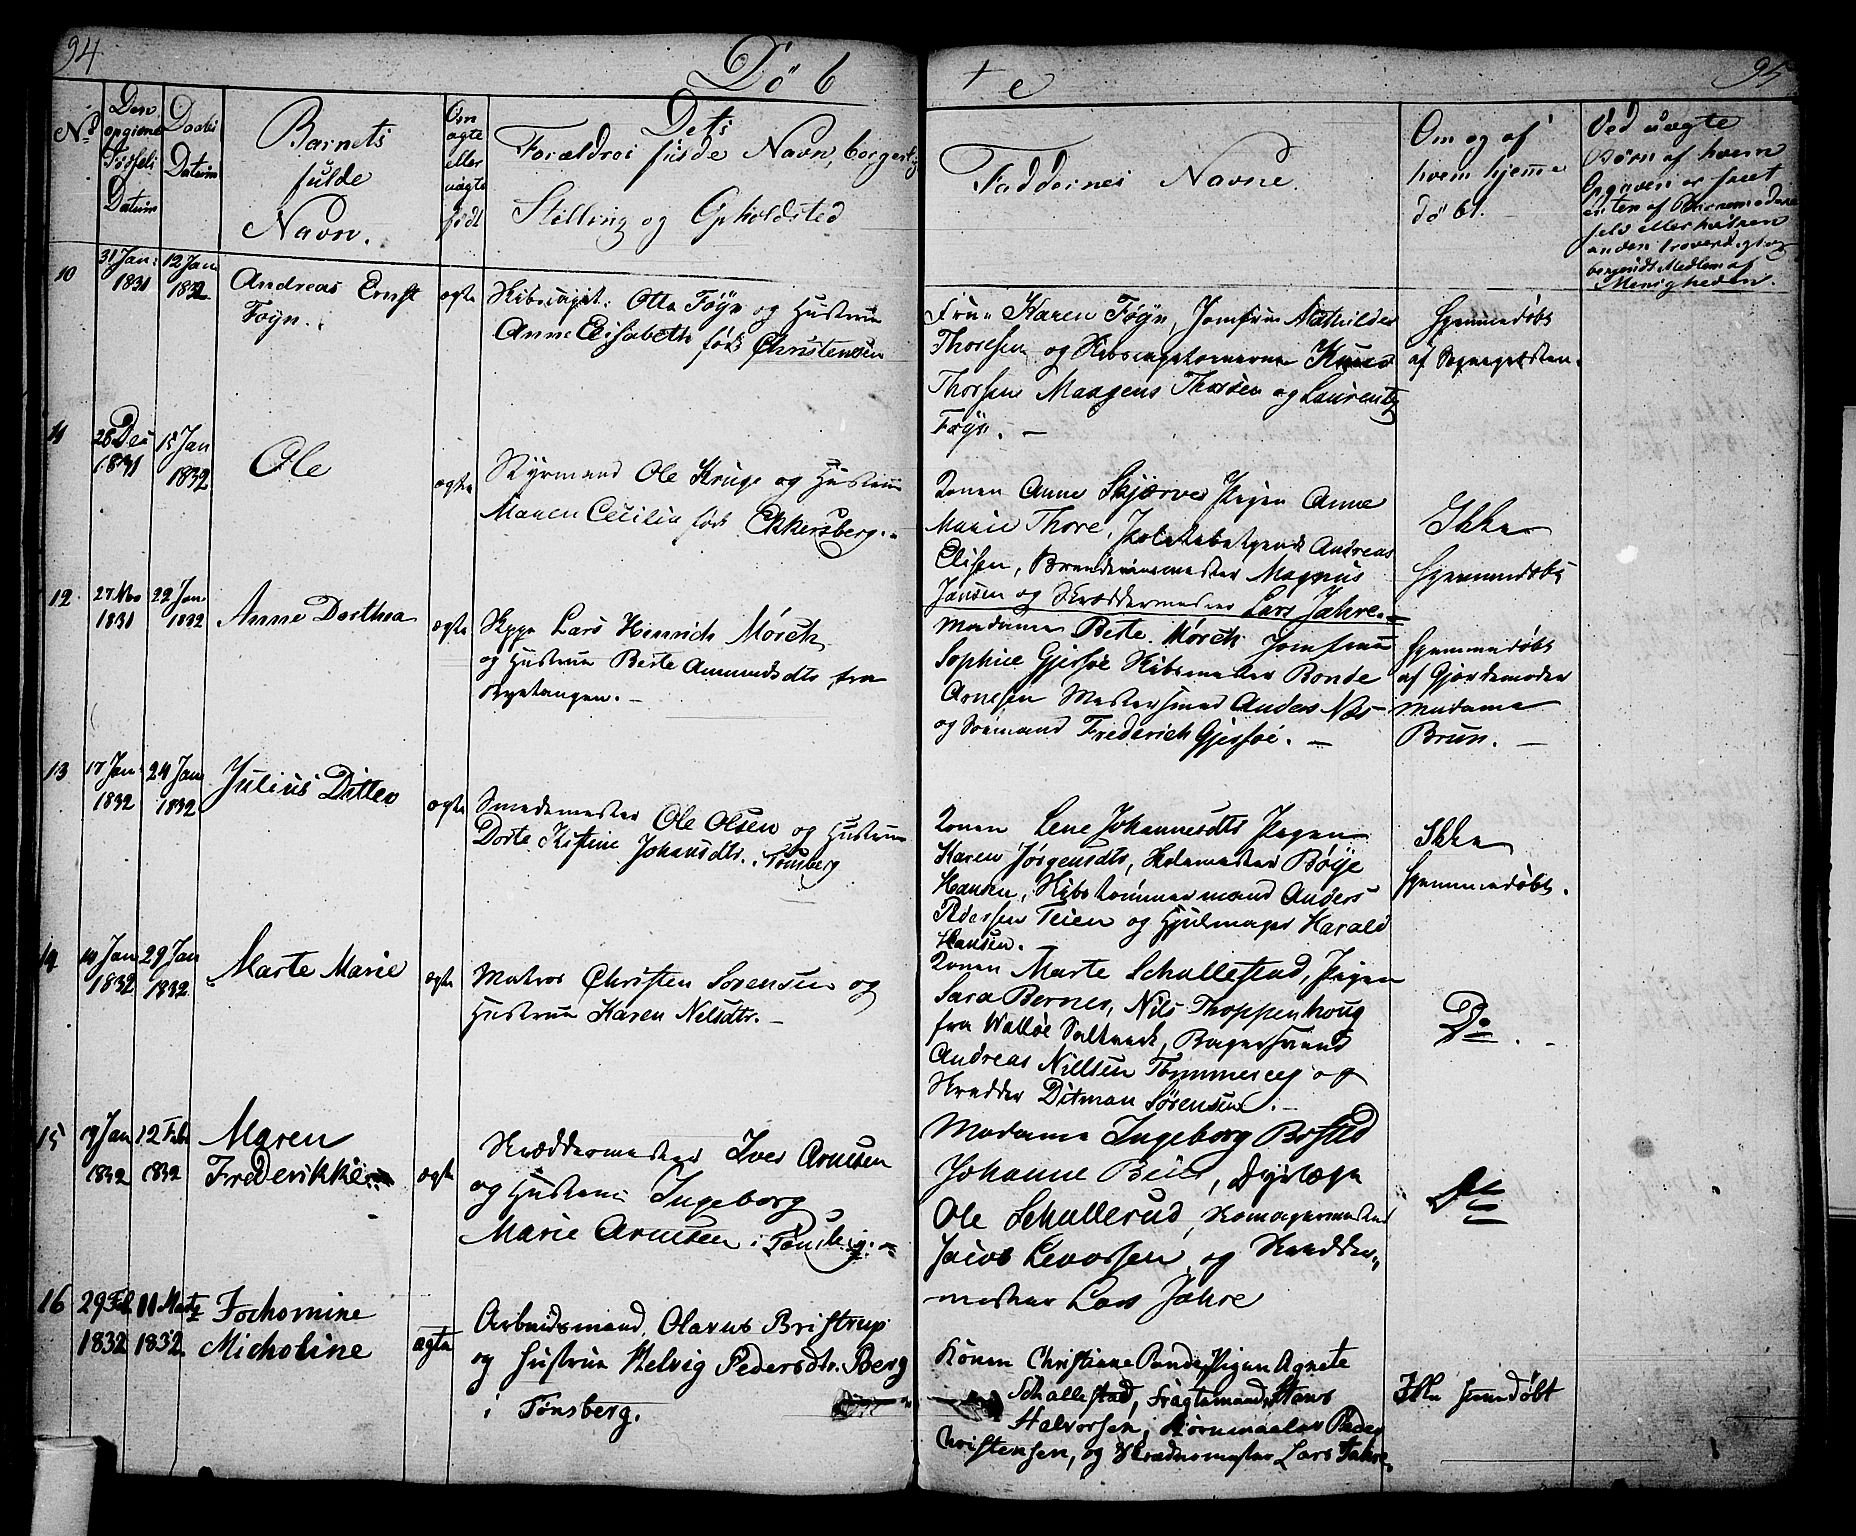 94
Döb
te
95
No
Den opgivne Fødsels Datum
Daabs Datum
Barnets
fulde
Navn.
Om ægte eller uægte født
Dets
Forældres fulde Navn, borgerlig
Stilling og Opholdsted
Faddernes Navne.
Om og af
hvem hjemme
döbt.
Ved uægte
Börn af hvem
Opgaven er skeet
enten af Barnemoderen
selv eller hvilken
anden troverdig og
bekjendt Medlem af
Menigheden.
10
31 Jan: 1831
12 Jan 1832
Andreas Ernst
Foyn.
ægte
Skibscapt: Otto Føyn og Hustrue
Anne Elisabeth født Christensen
Frue Karen Føyn, Jomfrue Mathilde
Thoresen og Skibscapitainerne
Thorsen Maagens Thorsen og Laurentz
Føyn. —
Hjemmedøbt
af Sognepræsten.
11
28 Dec 1831
15 Jan 1832
Ole
ægte
Styrmand Ole Kruge og Hustrue
Maren Cecilia født Ekkersberg.
Konen Anne Skjærve Pigen Anne
Marie Thore, Andreas
Elisen, Magnus
Jansen og Skreddermester Lars Jahre. —
Ikke
Hjemmedøbt
12
27 Nov 1831
22 Jan. 1832
Anne Dorthea
ægte
Skpp Lars Hinrich Mörch
og Hustrue Berte Amundsdtr fra
Madame Berte Mörch Jomfrue
Sophie Gjersøe Skibsmester Bonde
Arnesen Mestersmed Anders Næs
og Sømand Frederich Gjersøe. —
Hjemmedøbt
af Gjordemoder
Madame
Brun. —
13
17 Jan 1832
24 Jan 1832
Julius Ditlev
ægte
Smedemester Ole Olsen og Hustrue
Dorte Kistine Johansdtr. i Tønsberg
Konen Lene Johannesdtr Pigen
Karen Jørgensdtr, Børje
Hansen, Skibstømmermand Anders
Pedersen Teien og Hjulmager Harald
Hansen. —
Ikke
Hjemmedøbt.
14
Jan 1832
29 Jan 1832
Marte Marie
ægte
Matros Christen Sorensen og
Hustrue Karen Nelsdtr. —
Konen Marte Schallestad, Pigen
Sara Bernes, Nils Thoppenhoug
fra Walløe Saltverk, Bagersvend
Andreas Nielsen Tommereeg og
Skredder Ditman Sørensen. —
Do.
15
9 Jan 1832
12 Feb 1832
Maren
Frederikke
ægte
Skreddermester Iver Arnesen
og Hustrue Ingeborg
Marie Arnesen i Tønsberg.
Madame Ingeborg
Johanne Beier, Dyrlæge
Ole Schallerud, Skomagermester
Jacob Levorsen og Skredder„
mester Lars Jahre
Do
16
29 Feb 1832
11 Martz 1832
Jochomine
Micholine
ægte
Arbeidsmand Olavus Bristrup
og Hustrue Helvig Pedersdtr. Berg
i Tønsberg.
Könen Christianne Bande, Pigen Agnete
Schallestad, Fragtemand, Hans
Halvorsen, Kornmaaler Peder
Christensen, og Skrædermester Lars Jahre.
Ikke hiemmedøbt